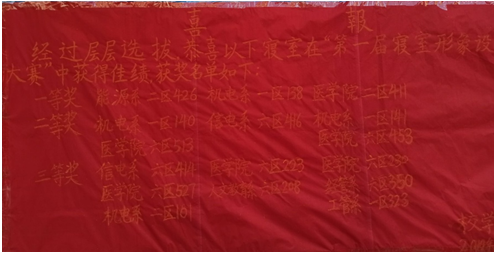 喜 報
经过层层选拔恭喜以下寝室在“第一届寝室形象设
大赛”中获得佳绩,获奖名单如下:
一等奖 能源系 二区426 机电系 一区138 医学院 二区411
二等奖 机电系 一区140 信电系 六区416 机电系 一区141
医学院 六区513 医学院 六区453
三等奖 信电系 六区414 医学院 一区223 医学院
医学院 六区527 六区350
机电系 一区101 一区323